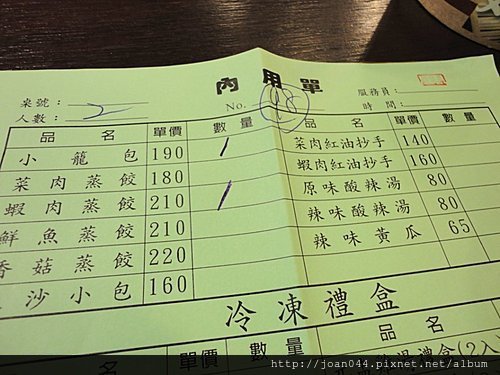 內用單
桌號：
No. 98
服務員：
人數：2
時間：
品名 單價 數量 品名 單價 數量
小籠包 190 菜肉紅油抄手 140
菜肉蒸餃 180 蝦肉紅油抄手 160
蝦肉蒸餃 210 原味酸辣湯 80
鮮魚蒸餃 210 辣味酸辣湯 80
香菇蒸餃 220 辣味黃瓜 65
沙小包 160
冷凍禮盒
品名 單價 數量 品名
禮盒(2入
http://joan044.pixnet.net/album